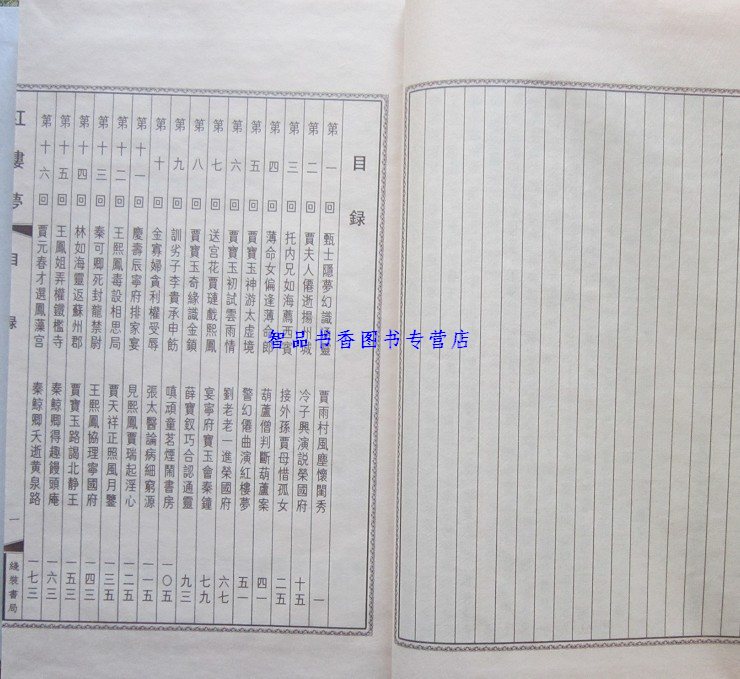 目録
第一回 甄士隱夢幻識通靈 賈雨村風塵懷閨秀 一
第二回 賈夫人僊逝揚州城 冷子興演説榮國府 十五
第三回 托内兄如海薦西賓 接外孫賈母惜孤女 二五
第四回 薄命女偏逢薄命郎 葫蘆僧判斷葫蘆案 四一
第五回 賈寶玉神游太虚境 警幻僊曲演紅樓夢 五一
第六回 賈寶玉初試雲雨情 劉老老一進榮國府 六七
第七回 送宮花賈璉戲熙鳳 宴寧府寶玉會秦鐘 七九
第八回 賈寶玉奇緣識金鎖 薛寶釵巧合認通靈 九三
第九回 訓劣子李貴承申飭 嗔頑童茗煙鬧書房 一〇五
第十回 金寡婦貪利權受辱 張太醫論病細窮源 一一五
第十一回 慶壽辰寧府排家宴 見熙鳳賈瑞起淫心 一二五
第十二回 王熙鳳毒設相思局 賈天祥正照風月鑒 一三五
第十三回 秦可卿死封龍禁尉 王熙鳳協理寧國府 一四三
第十四回 林如海靈返蘇州郡 賈寶玉路謁北静王 一五三
第十五回 王鳳姐弄權鐵檻寺 秦鯨卿得趣饅頭庵 一六三
第十六回 賈元春才選鳳藻宮 秦鯨卿夭逝黄泉路 一七三
紅樓夢
目録
一
綫裝書局
智品书香图书专营店